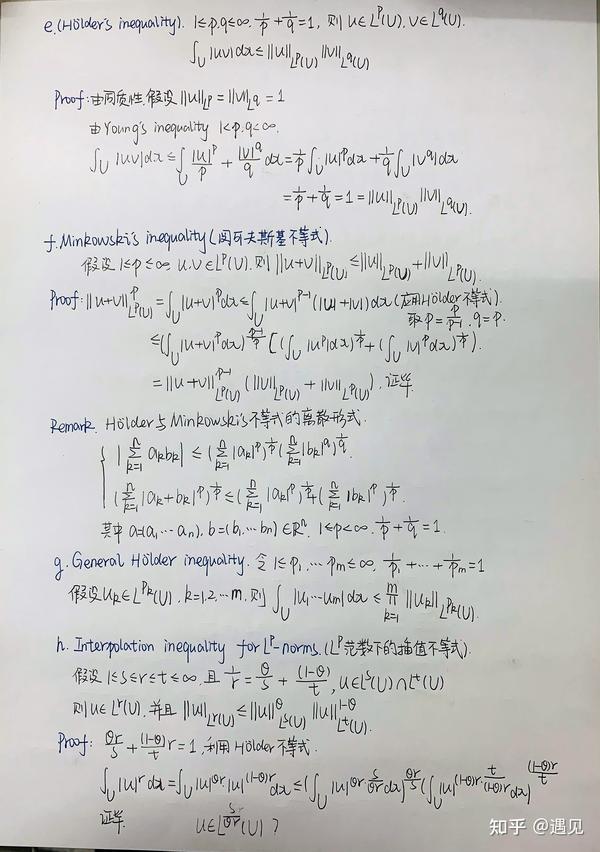 e.(Hölder's inequality). 1≤p.q≤∞. 1/p + 1/q = 1, 则 u∈L^p(U). v∈L^q(U).
∫_U |uv|dx ≤ ||u||_{L^p(U)} ||v||_{L^q(U)}
Proof: 由同质性. 假设 ||u||_{L^p} = ||v||_{L^q} = 1
由Young's inequality 1<p.q<∞.
∫_U |uv|dx ≤ ∫_U |u|^p/p + |v|^q/q dx = 1/p ∫_U |u|^p dx + 1/q ∫_U |v|^q dx
= 1/p + 1/q = 1 = ||u||_{L^p(U)} ||v||_{L^q(U)}.
f. Minkowski's inequality (闵可夫斯基不等式).
假设 1≤p≤∞ u.v∈L^p(U). 则 ||u+v||_{L^p(U)} ≤ ||u||_{L^p(U)} + ||v||_{L^p(U)}.
Proof: ||u+v||^p_{L^p(U)} = ∫_U |u+v|^p dx ≤ ∫_U |u+v|^{p-1} (|u|+|v|) dx (应用Hölder不等式).
取 p = p/(p-1). q = p.
≤ (∫_U |u+v|^p dx)^{(p-1)/p} [(∫_U |u|^p dx)^{1/p} + (∫_U |v|^p dx)^{1/p}).
= ||u+v||^{p-1}_{L^p(U)} (||u||_{L^p(U)} + ||v||_{L^p(U)}). 证毕.
Remark. Hölder与Minkowski's不等式的离散形式.
{ |∑_{k=1}^n a_k b_k| ≤ (∑_{k=1}^n |a_k|^p)^{1/p} (∑_{k=1}^n |b_k|^q)^{1/q}.
(∑_{k=1}^n |a_k+b_k|^p)^{1/p} ≤ (∑_{k=1}^n |a_k|^p)^{1/p} + (∑_{k=1}^n |b_k|^p)^{1/p}.
其中 a=(a_1…a_n), b=(b_1…b_n)∈R^n. 1≤p<∞. 1/p + 1/q = 1.
g. General Hölder inequality. 令 1≤p_1,…p_m≤∞, 1/p_1 + … + 1/p_m = 1
假设 u_k∈L^{p_k}(U), k=1,2,…m. 则 ∫_U |u_1…u_m|dx ≤ ∏_{k=1}^m ||u_k||_{L^{p_k}(U)}.
h. Interpolation inequality for L^p-norms. (L^p范数下的插值不等式).
假设 1≤s≤r≤t≤∞, 且 1/r = θ/s + (1-θ)/t, u∈L^s(U)∩L^t(U)
则 u∈L^r(U), 并且 ||u||_{L^r(U)} ≤ ||u||^θ_{L^s(U)} ||u||^{1-θ}_{L^t(U)}.
Proof: θr/s + (1-θ)r/t = 1, 利用Hölder不等式.
∫_U |u|^r dx = ∫_U |u|^{θr}·|u|^{(1-θ)r} dx ≤ (∫_U |u|^{θr·s/(θr)} dx)^{θr/s} (∫_U |u|^{(1-θ)r·t/((1-θ)r)} dx)^{(1-θ)r/t}
证毕. u∈L^{s/(θr)}(U) ?
知乎 @遇见